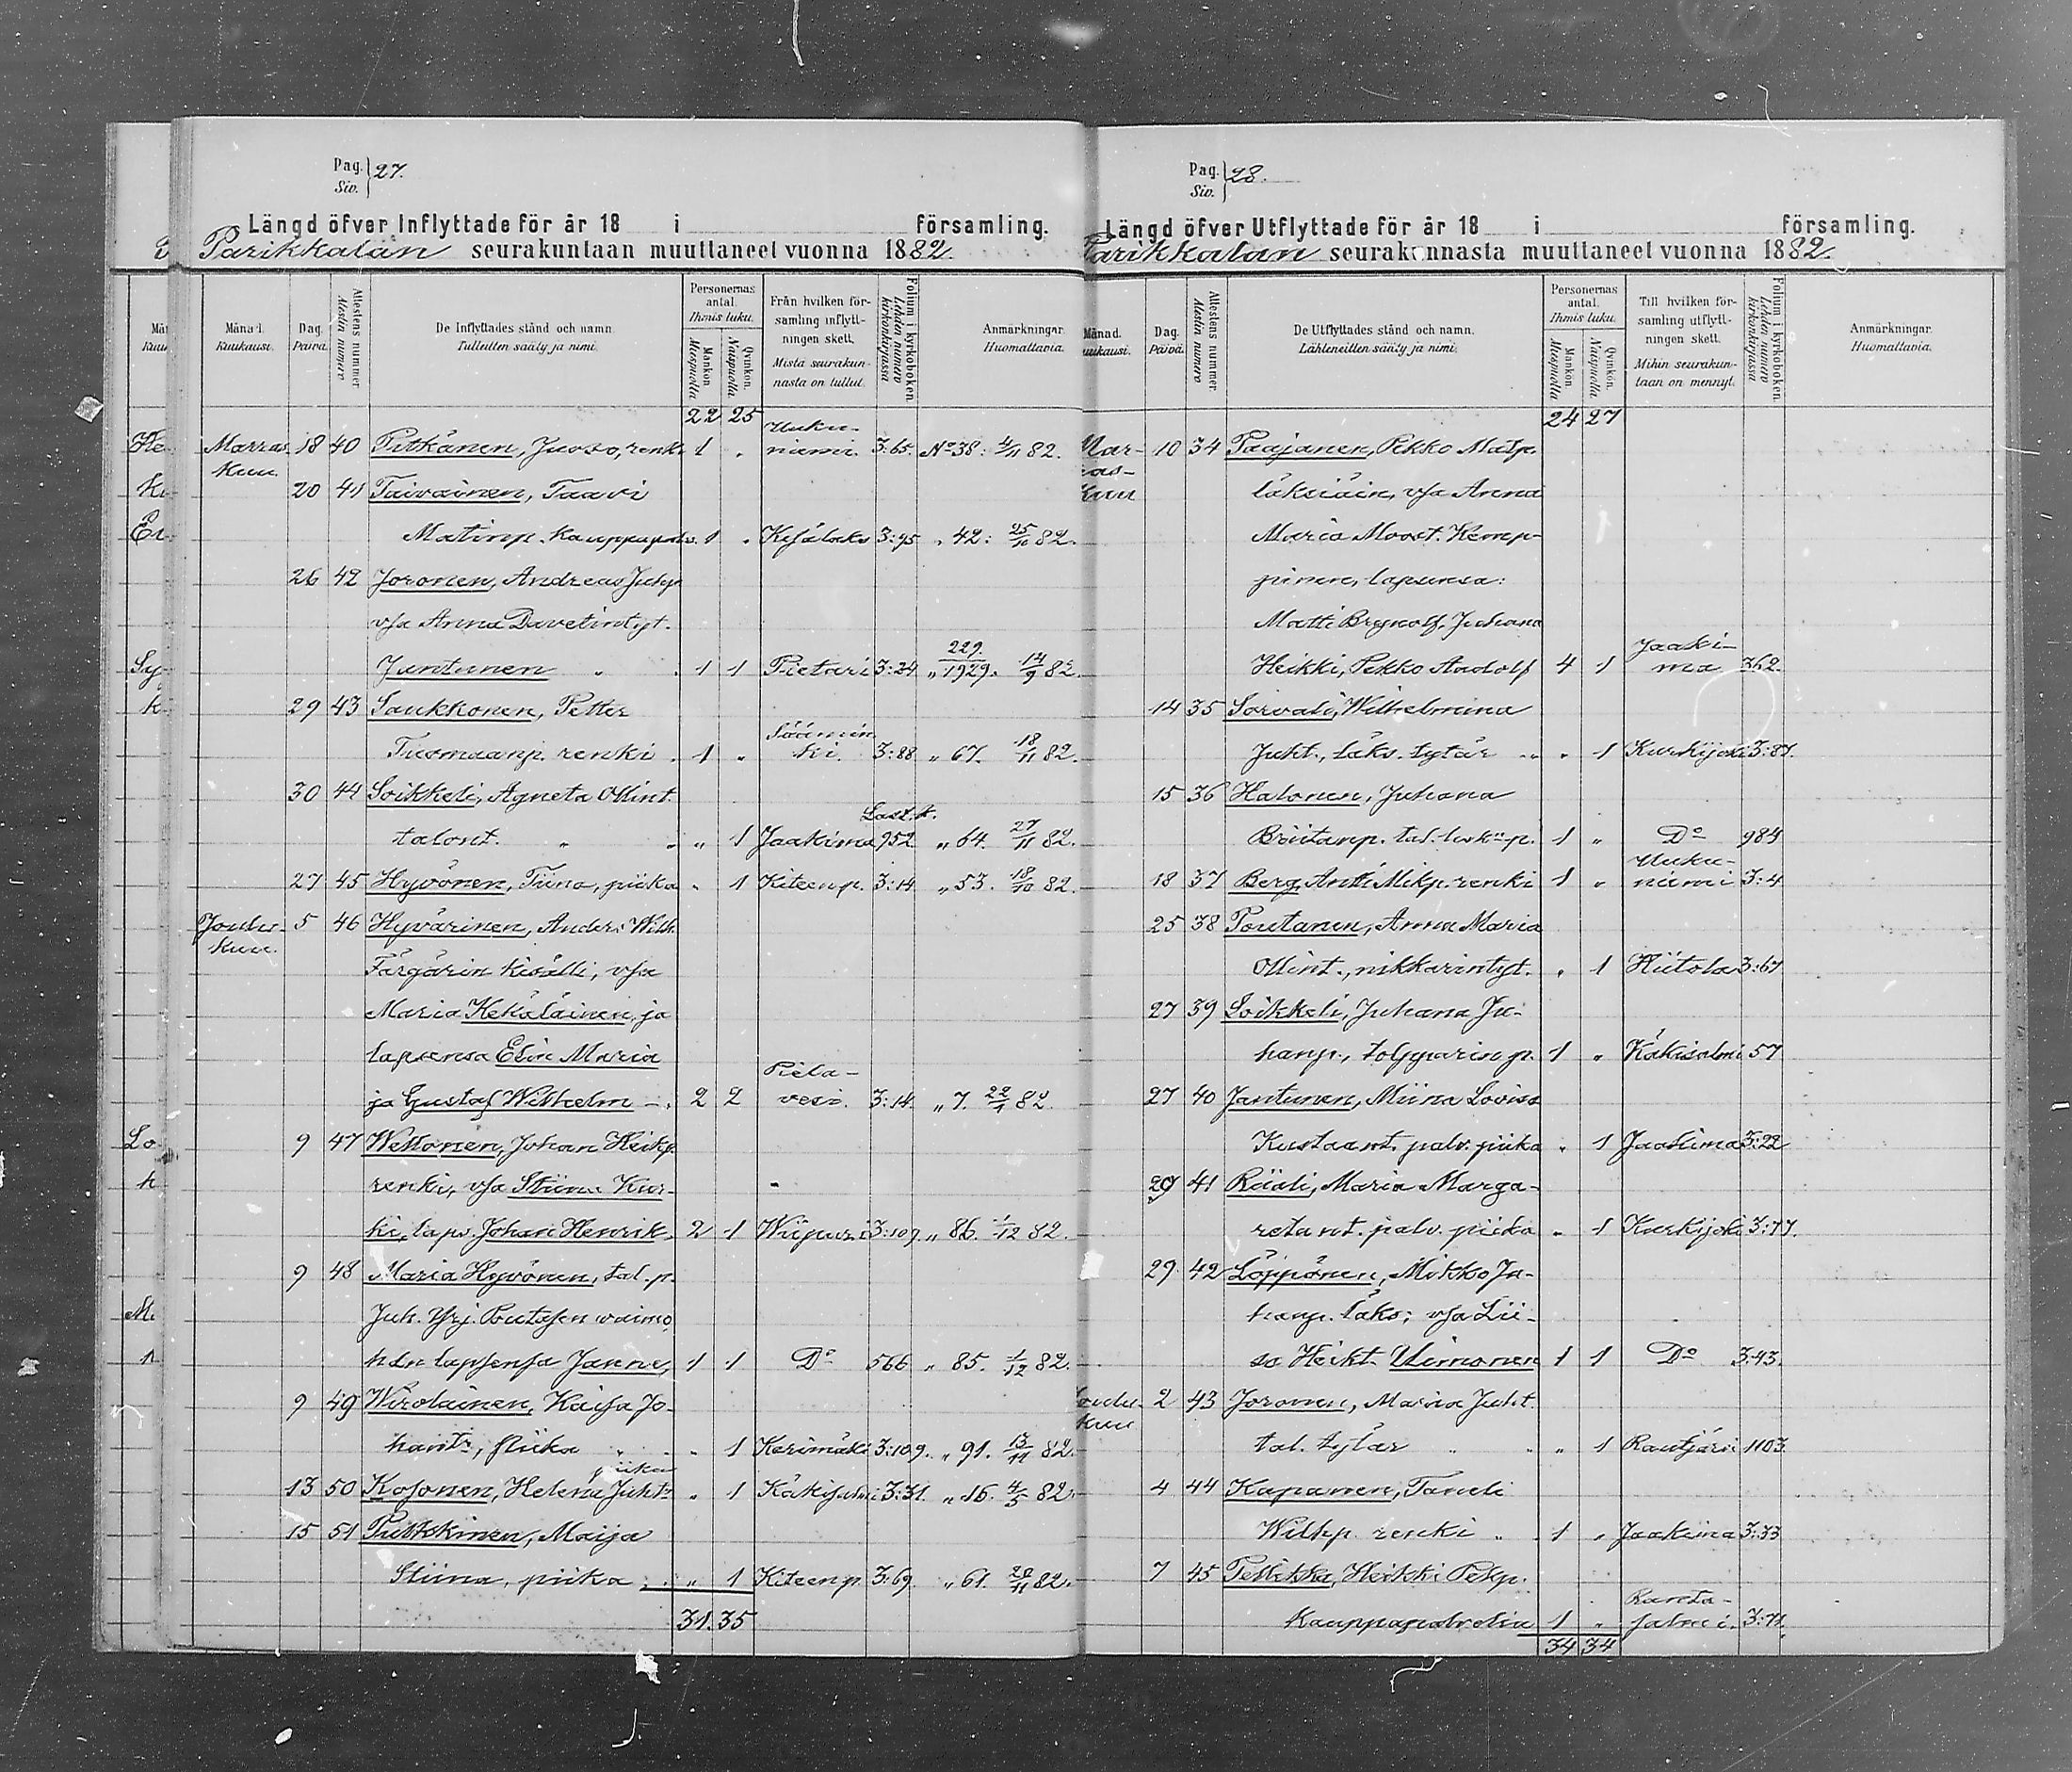 Pag. Siv. 27.
Längd öfver Inflyttade för år 18 i församling.
Parikkalan seurakuntaan muuttaneet vuonna 1882.
Månad. Kuukausi.
Dag. Päivä.
Attestens nummer Mestin numero
De Inflyttades stånd och namn. Tulleitten sääty ja nimi.
Personernas antal. Ihmis luku.
Mankön Miespuolia
Qvinkön. Naispuolia
Från hvilken församling inflyttningen skett. Mistä seurakunnasta on tullut.
Folium i kyrkoboken. Lehden numero kirkonkirjassa
Anmärkningar. Huomattavia.
22 25
Marras kuu. 18 40 Pitkänen, Juoso, renki 1 " Uukuniemi. 3:65. No 38: 4/11 82.
20 41 Taivainen, Taavi
Matinp. kauppapalv. 1 " Kesälaks 3:95 " 42: 25/10 82.
26 42 Joronen, Andreas Juhp.
vsa Anna Davetintyt.
Jantunen " 1 1 Pietari 3:24 " 229./1929. 14/9 82.
29 43 Saukkonen, Petter
Tuomaanp. renki 1 " Sääminki. 3:88 " 67. 18/11 82.
30 44 Soikkeli, Agneta Ollint.
talont. " " 1 Jaakima 952 " 64. 27/11 82.
27 45 Hyvönen, Tiina, piika " 1 Kiteenp. 3:14 " 53. 18/10 82.
Joulukuu. 5 46 Hyvärinen, Anders Wilh.
Färgärin kisälli, vsa
Maria Kekäläinen, ja
lapsensa Elin Maria
ja Gustaf Wilhelm 2 2 Pielavesi. 3:14. " 7. 22/1 82.
9 47 Wettonen, Johan Heikp.
renki, vsa Stiina Kur-
ki, laps. Johan Henrik 2 1 Wiipuri 3:109 " 86. 1/12 82.
9 48 Maria Hyvönen, tal. p.
Juh. Yrj. Poutasen vaimo,
hdn lapsensa Janne, 1 1 Do 566 " 85. 1/12 82.
9 49 Wirolainen, Kaisa Jo-
hantr, piika " 1 Kerimäki 3:109. " 91. 13/11 82.
13 50 Kosonen, Helena Juhtr piika " 1 Käkisalmi 3:31. " 16. 4/5 82.
15 51 Putkinen, Maija
Stiina, piika " 1 Kiteenp. 3:69. " 61. 20/11 82.
31. 35
Pag. Siv. 28.
Längd öfver Utflyttade för år 18 i församling.
Parikkalan seurakunnasta muuttaneet vuonna 1882.
Månad. Kuukausi.
Dag. Päivä.
Attestens nummer Mestin numero
De Utflyttades stånd och namn. Lähteneitten sääty ja nimi.
Personernas antal. Ihmis luku.
Mankön Miespuolia
Qvinkön. Naispuolia
Till hvilken församling utflyttningen skett. Mihin seurakuntaan on mennyt.
Folium i kyrkoboken. Lehden numero kirkonkirjassa
Anmärkningar. Huomattavia.
24 27
Marraskuu 10 34 Paajanen, Pekko Matp.
läksiäin, vsa Anna
Maria Moost. Kemp-
pinen, lapsensa:
Matti Brynolf, Juhana
Heikki, Pekko Andolf 4 1 Jaakima 362.
14 35 Sorvali, Wilhelmina
Juht., läks. tytär " 1 Kurkijoki 3:87.
15 36 Halonen, Juhana
Briitanp. tal. lesken p. 1 " Do 984
18 37 Berg, Antti Mikp. renki 1 " Uukuniemi 3:4
25 38 Poutanen, Anna Maria
Ollint., nikkarintyt. " 1 Hiitola 3:67
27 39 Soikkeli, Juhana Ju-
hanp., tolpparin p. 1 " Käkisalmi 57
27 40 Jantunen, Miina Lovisa
Kustaant. palv. piika " 1 Jaakima 3:22
29 41 Rääli, Maria Marga-
retant. palv. piika " 1 Kurkijoki 3:77.
29. 42 Löppönen, Mikko Ju-
hanp. läks; vsa Lii-
sa Heikt. Uimonen 1 1 Do 3:43.
Joulukuu 2 43 Joronen, Maria Juht.
tal. tytär " 1 Rautjärvi 1103.
4 44 Kapanen, Taneli
Wilhp. renki 1 " Jaakima 3:33
7 45 Pellikka, Heikki Pekp.
Kauppapalvelia 1 " Rantasalmi. 3:71.
34 34